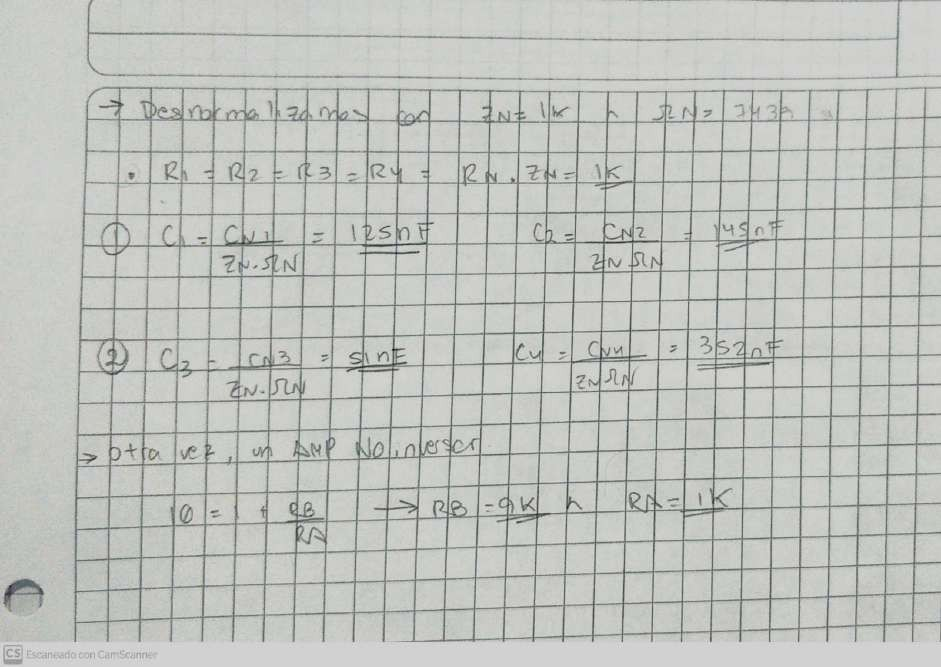 → Desnormalizamos con ZN = 1K ∧ ΩN =
• R1 = R2 = R3 = R4 = RN . ZN = 1K
① C1 = CN1 / ZN.ΩN = 125nF C2 = CN2 / ZN ΩN = 145nF
② C3 = CN3 / ZN.ΩN = 51nF C4 = CN4 / ZN ΩN = 352nF
→ otra vez, un AMP No inversor.
10 = 1 + RB / RA → RB = 9K ∧ RA = 1K
CS Escaneado con CamScanner